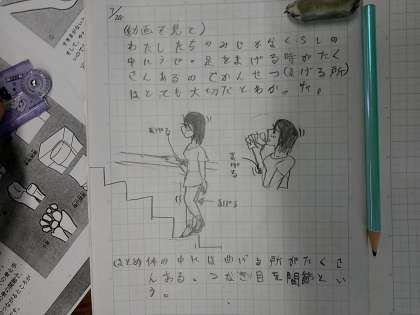 7/20
(動画を見て)
わたしたちのみぢかなくらしの
中にうでや足をまげる時がたく
さんあるのでかんせつ(まげる所)
はとても大切だとわかった。
まげる
まげる
まげる
まとめ体の中には曲げる所がたくさ
んある。つなぎ目を関節とい
う。